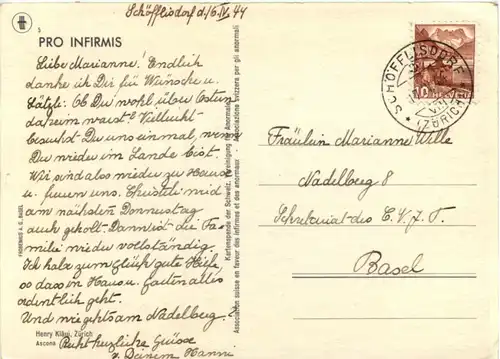 Schöfflisdorf d. 16. IV. 44
PRO INFIRMIS
Liebe Marianne! Endlich
danke ich Dir für Wünsche u.
Ob Du wohl über Ostern
daheim warst? Vielleicht
besuchst Du uns einmal, wenn
Du wieder im Lande bist.
Wir sind also wieder zu Hause
u. freuen uns. Christeli wird
am nächsten Donnerstag
auch geholt. Dann ist die Fa-
milie wieder vollständig.
Ich habe zum Glück gute Hilfe,
so dass in Haus u. Garten alles
ordentlich geht.
Und wie gehts am Nadelberg?
Recht herzliche Grüsse
v. Deinem Hanni
Henry Kläui, Zürich
Ascona
FROBENIUS A. G. BASEL
Kartenspende der Schweiz. Vereinigung für Anormale
Associations suisse en faveur des infirmes et des anormaux
Associazione svizzera per gli anormali
SCHÖFFLISDORF
(ZÜRICH)
10
Fräulein Marianne Wille
Nadelberg 8
Sekretariat des C.V.J.T.
Basel